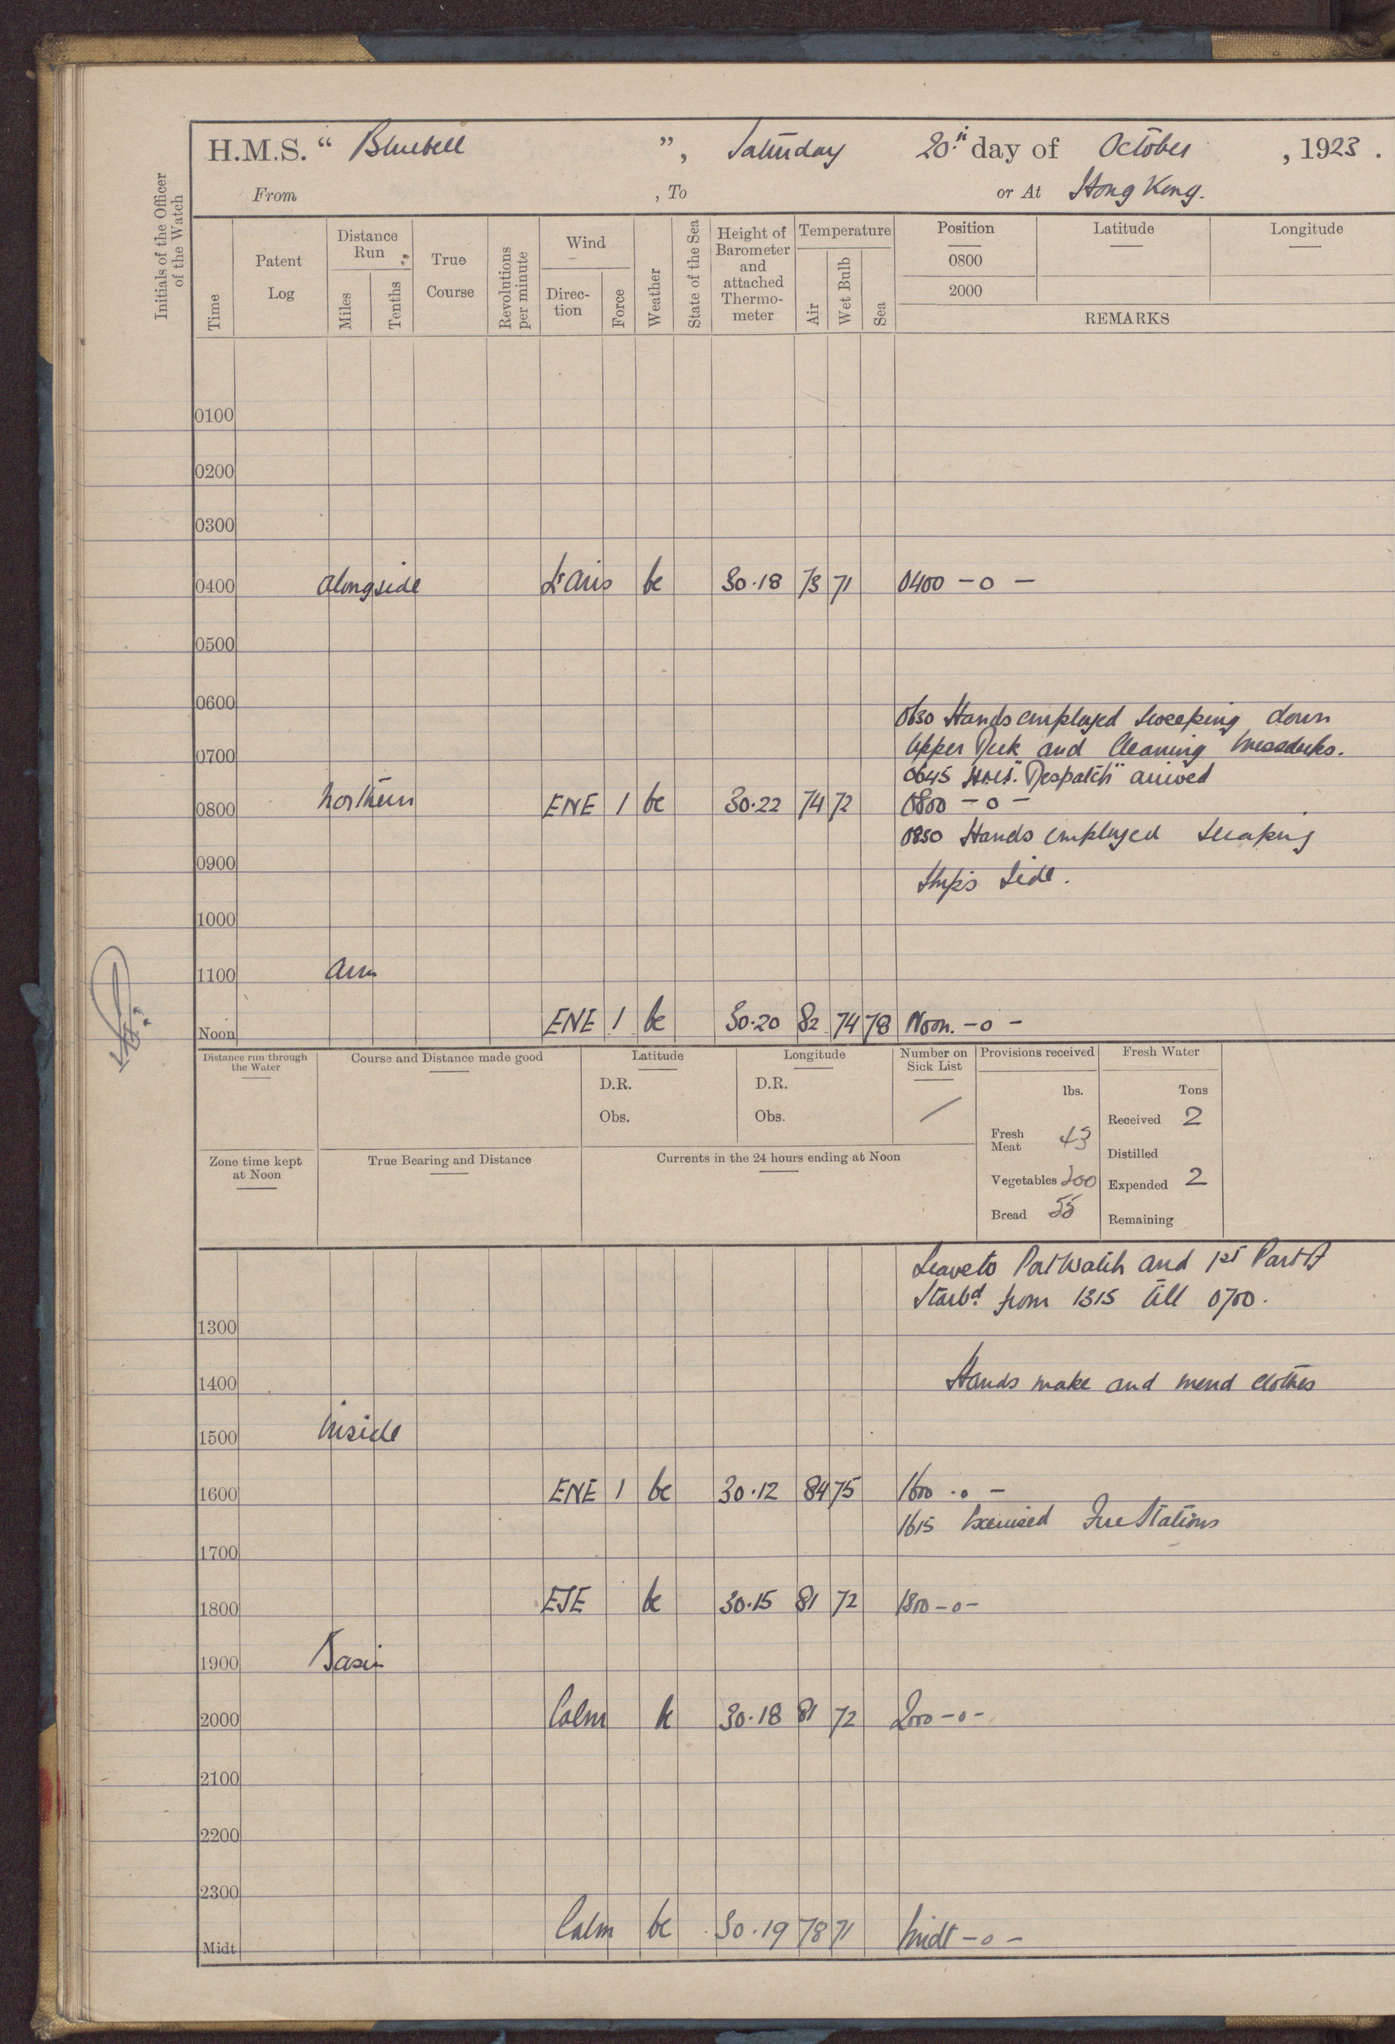 H.M.S. “ Bluebell ”, Saturday 20th day of October , 1923.
From , To or At Hong Kong.
Initials of the Officer of the Watch
Time
Patent Log
Distance Run
Miles
Tenths
True Course
Revolutions per minute
Wind
Direc-tion
Force
Weather
State of the Sea
Height of Barometer and attached Thermo-meter
Temperature
Air
Wet Bulb
Sea
Position Latitude Longitude
0800
2000
REMARKS
0100
0200
0300
0400 alongside Lt airs bc 30.18 73 71 0400 - o -
0500
0600
0630 Hands employed sweeping down
0700 Upper Deck and Cleaning messdecks.
0645 H.M.S. "Despatch" arrived
0800 Northern ENE 1 bc 30.22 74 72 0800 - o -
0830 Hands employed scraping
0900 Ships Side.
1000
1100 arm
Noon ENE 1 bc 30.20 82 74 78 Noon. - o -
Distance run through the Water
Course and Distance made good
Latitude
D.R.
Obs.
Longitude
D.R.
Obs.
Number on Sick List
/
Provisions received
lbs.
Fresh Meat 43
Vegetables 200
Bread 55
Fresh Water
Tons
Received 2
Distilled
Expended 2
Remaining
Zone time kept at Noon
True Bearing and Distance
Currents in the 24 hours ending at Noon
Leave to Port Watch and 1st Part of
Starbd. from 1315 till 0700.
1300
1400 Hands make and mend clothes
1500 inside
1600 ENE 1 bc 30.12 84 75 1600 - o -
1615 Exercised Fire Stations
1700
1800 ESE bc 30.15 81 72 1800 - o -
1900 Basin
2000 Calm bc 30.18 81 72 2000 - o -
2100
2200
2300
Midt Calm bc 30.19 78 71 Midt - o -